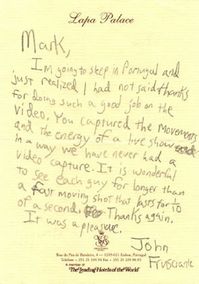 Lapa Palace
Mark,
I'm going to sleep in Portugal and
just realized I had not said thanks
for doing such a good job on the
video. You captured the movements
and the energy of a live show
in a way we have never had a
video capture. It is wonderful
to see each guy for longer than
a fast moving shot that lasts for 1/10
of a second. Thanks again.
It was a pleasure,
John
Frusciante
Rua do Pau de Bandeira, 4 — 1249-021 Lisboa, Portugal
The Leading Hotels of the World